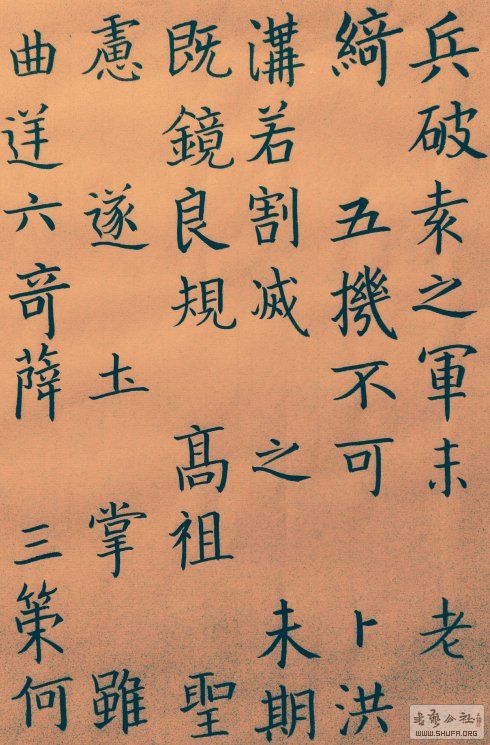 兵破袁之軍未 老
綺 五機不可 卜洪
溝若割滅 之 未期
既鏡良規 髙祖 聖
慮 遂 圡 掌 雖
曲逆六竒薛 三策何
WWW.SHUFA.ORG